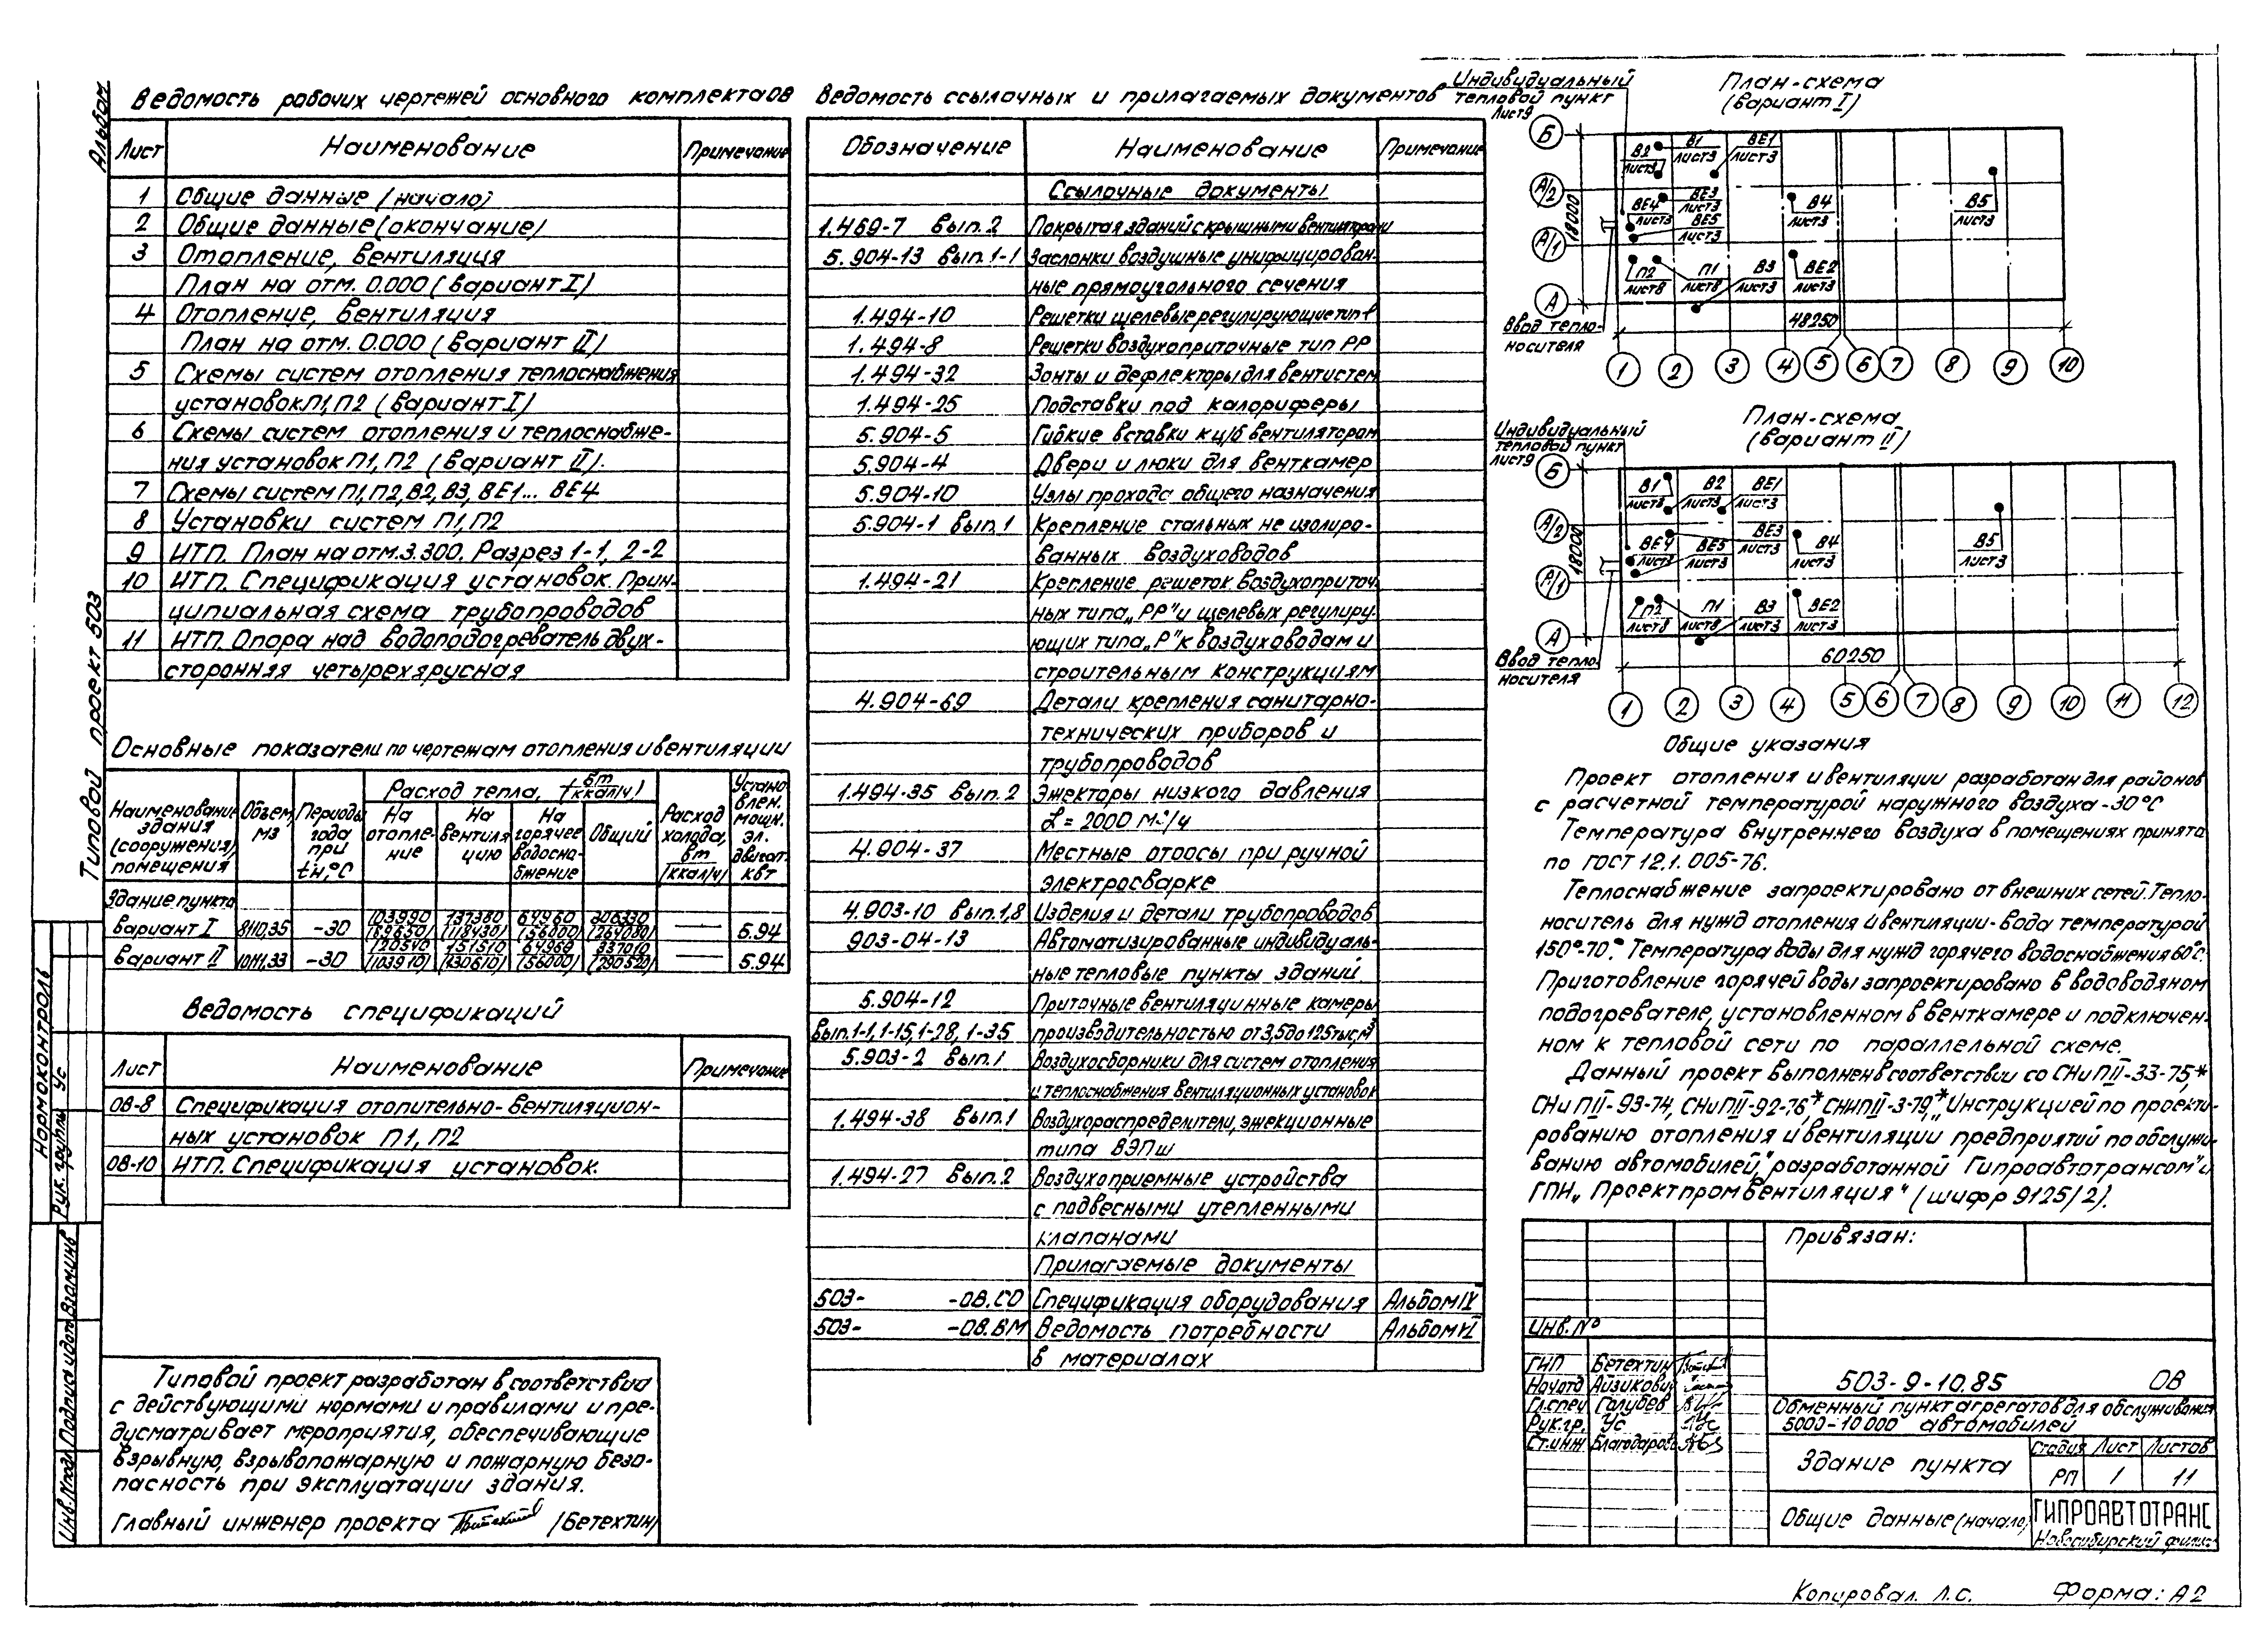 Альбом
Типовой проект 503
Ведомость рабочих чертежей основного комплекта ОВ
Лист Наименование Примечание
1 Общие данные (начало)
2 Общие данные (окончание)
3 Отопление, вентиляция
План на отм. 0.000 (вариант I)
4 Отопление, вентиляция
План на отм. 0.000 (вариант II)
5 Схемы систем отопления теплоснабжения
установок П1, П2 (вариант I)
6 Схемы систем отопления и теплоснабже-
ния установок П1, П2 (вариант II).
7 Схемы систем П1, П2, В2, В3, ВЕ1... ВЕ4
8 Установки систем П1, П2
9 ИТП. План на отм. 3.300. Разрез 1-1, 2-2
10 ИТП. Спецификация установок. Прин-
ципиальная схема трубопроводов
11 ИТП. Опора над водоподогреватель двух-
сторонняя четырехярусная
Основные показатели по чертежам отопления и вентиляции
Наименование здания (сооружения) помещения
Объем, м3
Периоды года при tн, °С
Расход тепла, Вт (ккал/ч)
На отопле-ние
На вентиля цию
На горячее водосна-бжение
Общий
Расход холода, Вт (ккал/ч)
Установлен. мощн. эл. двигат. квт
Здание пункта
вариант I 8110,35 -30 103990 137380 64960 306330 — 5.94
(118430) (56000) (264080)
вариант II 10111,33 -30 120540 151510 64960 337010 — 5.94
(103910) (130610) (56000) (290520)
Ведомость спецификаций
Лист Наименование Примечание
ОВ-8 Спецификация отопительно-вентиляцион-
ных установок П1, П2
ОВ-10 ИТП. Спецификация установок.
Типовой проект разработан в соответствии
с действующими нормами и правилами и пре-
дусматривает мероприятия, обеспечивающие
взрывную, взрывопожарную и пожарную безо-
пасность при эксплуатации здания.
Главный инженер проекта /Бетехтин/
Нормоконтроль
Рук. группы Ус
Инв. № подл. Подпись и дата Взам.инв
Ведомость ссылочных и прилагаемых документов
Обозначение Наименование Примечание
Ссылочные документы
1.469-7 вып. 2 Покрытая зданий с крышными вентиляторами
5.904-13 вып. 1-1 Заслонки воздушные унифицирован-
ные прямоугольного сечения
1.494-10 Решетки щелевые регулирующие тип Р
1.494-8 Решетки воздухоприточные тип РР
1.494-32 Зонты и дефлекторы для вентистем
1.494-25 Подставки под калориферы
5.904-5 Гибкие вставки к ц/б вентиляторам
5.904-4 Двери и люки для венткамер
5.904-10 Узлы прохода общего назначения
5.904-1 вып. 1 Крепление стальных не изолиро-
ванных воздуховодов
1.494-21 Крепление решеток воздухоприточ-
ных типа „РР" и щелевых регулиру-
ющих типа „Р" к воздуховодам и
строительным конструкциям
4.904-69 Детали крепления санитарно-
технических приборов и
трубопроводов
1.494-35 вып. 2 Эжекторы низкого давления
L = 2000 м3/ч
4.904-37 Местные отсосы при ручной
электросварке
4.903-10 вып. 1,8 Изделия и детали трубопроводов
903-04-13 Автоматизированные индивидуаль-
ные тепловые пункты зданий
5.904-12 Приточные вентиляцинные камеры
вып. 1-1, 1-15, 1-28, 1-35 производительностью от 3,5 до 125 тыс, м3
5.903-2 вып. 1 Воздухосборники для систем отопления
и теплоснабжения вентиляционных установок
1.494-38 вып. 1 Воздухораспределители, эжекционные
типа ВЭПш
1.494-27 вып. 2 Воздухоприемные устройства
с подвесными утепленными
клапанами
Прилагаемые документы
503- -ОВ.СО Спецификация оборудования Альбом IV
503- -ОВ.ВМ Ведомость потребности Альбом VI
в материалах
План-схема
(вариант I)
Индивидуальный
тепловой пункт
Лист 9
Б А/2 А/1 А
18000
В2 Лист 3 В1 Лист 3 ВЕ1 Лист 3
ВЕ4 Лист 3 ВЕ3 Лист 3 ВЕ5 Лист 3 В4 Лист 3 В5 Лист 3
П2 Лист 8 П1 Лист 8 В3 Лист 3 ВЕ2 Лист 3
Ввод тепло-
носителя
48250
1 2 3 4 5 6 7 8 9 10
План-схема
(вариант II)
Индивидуальный
тепловой пункт
Лист 9
Б А/2 А/1 А
18000
В1 Лист 3 В2 Лист 3 ВЕ1 Лист 3
ВЕ4 Лист 3 ВЕ5 Лист 3 ВЕ3 Лист 3 В4 Лист 3 В5 Лист 3
П2 Лист 8 П1 Лист 8 В3 Лист 3 ВЕ2 Лист 3
Ввод тепло-
носителя
60250
1 2 3 4 5 6 7 8 9 10 11 12
Общие указания
Проект отопления и вентиляции разработан для районов
с расчетной температурой наружного воздуха -30°С
Температура внутреннего воздуха в помещениях принята
по ГОСТ 12.1.005-76.
Теплоснабжение запроектировано от внешних сетей. Тепло-
носитель для нужд отопления и вентиляции-вода температурой
150°-70°. Температура воды для нужд горячего водоснабжения 60°С.
Приготовление горячей воды запроектировано в водоводяном
подогревателе, установленном в венткамере и подключен-
ном к тепловой сети по параллельной схеме.
Данный проект выполнен в соответствии со СНиП II-33-75,*
СНиП II-93-74, СНиП II-92-76,* СНиП II-3-79,* „Инструкцией по проекти-
рованию отопления и вентиляции предприятий по обслужи-
ванию автомобилей," разработанной Гипроавтотрансом" и
ГПИ „Проектпромвентиляция" (шифр 9125/2).
Привязан:
Инв. №
ГИП Бетехтин
Нач.отд Айзикович
Гл.спец Голубев
Рук.гр. Ус
Ст.инж Благодаров
503-9-10.85 ОВ
Обменный пункт агрегатов для обслуживания
5000-10 000 автомобилей
Здание пункта
Стадия Лист Листов
РП 1 11
Общие данные (начало)
ГИПРОАВТОТРАНС
Новосибирский филиал
Копировал. Л.С. Форма: А2